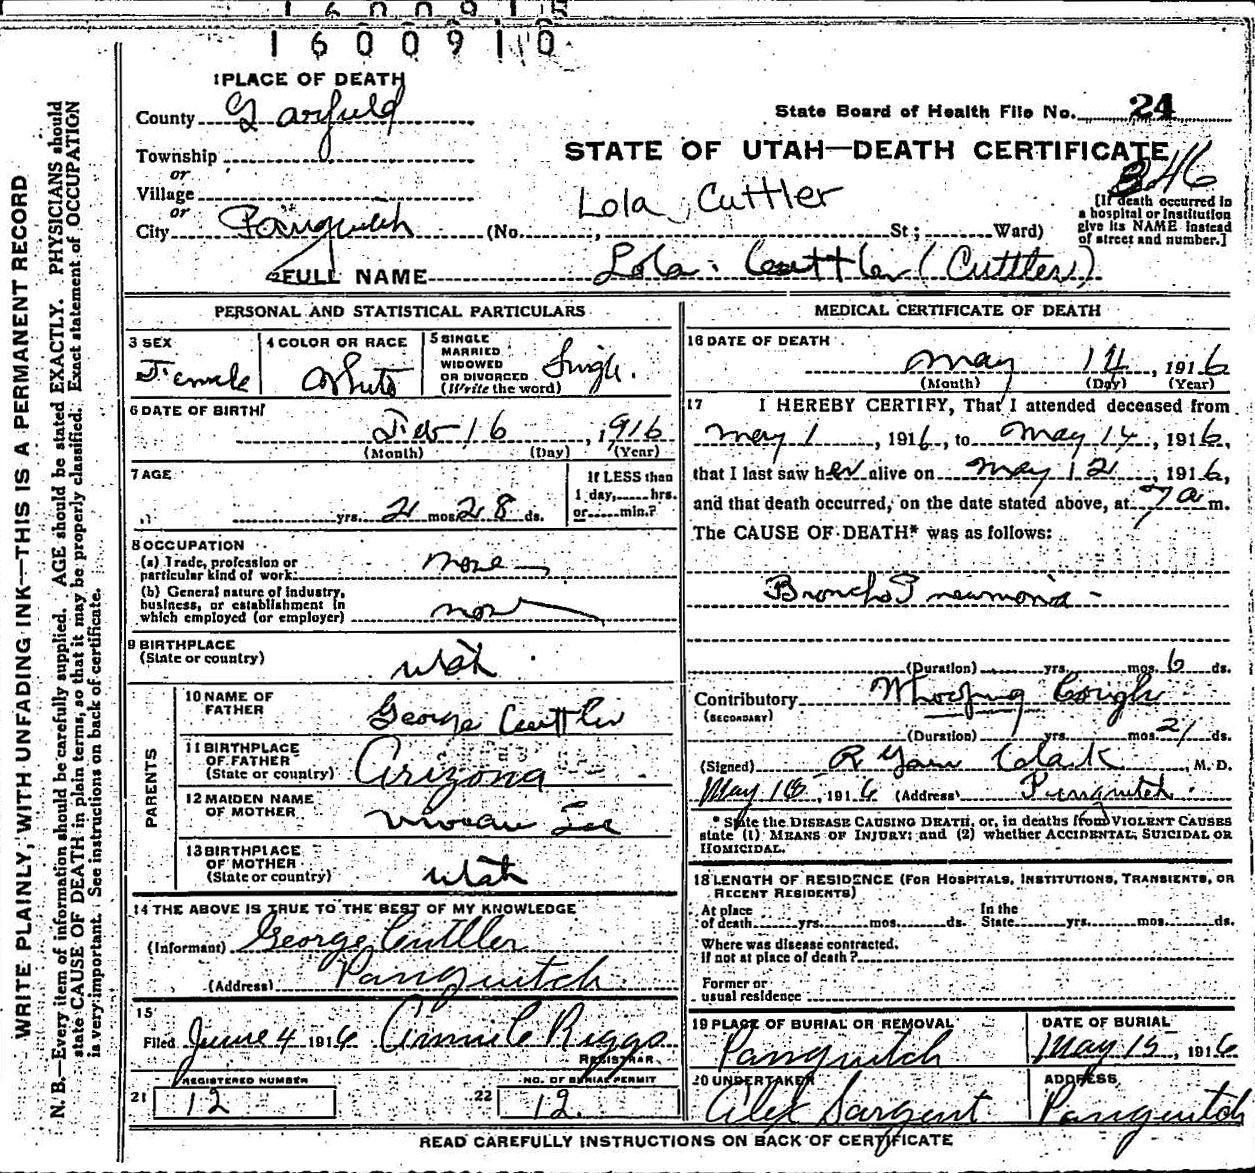 1600910
1 PLACE OF DEATH
County Garfield
State Board of Health File No. 24
Township
or
STATE OF UTAH—DEATH CERTIFICATE
346
Village
or
Lola Cuttler
[If death occurred in a hospital or institution give its NAME instead of street and number.]
City Panguitch (No. , St; Ward)
2 FULL NAME Lola Cuttler (Cuttler)
PERSONAL AND STATISTICAL PARTICULARS
3 SEX Female
4 COLOR OR RACE White
5 SINGLE MARRIED WIDOWED OR DIVORCED (Write the word) Single.
6 DATE OF BIRTH
Feb 16, 1916
(Month) (Day) (Year)
7 AGE
yrs. 2 mos. 28 ds.
If LESS than 1 day, hrs. or min.?
8 OCCUPATION
(a) Trade, profession or particular kind of work. none
(b) General nature of industry, business, or establishment in which employed (or employer) none
9 BIRTHPLACE
(State or country) Utah
PARENTS
10 NAME OF FATHER George Cuttler
11 BIRTHPLACE OF FATHER (State or country) Arizona
12 MAIDEN NAME OF MOTHER Vivean Lee
13 BIRTHPLACE OF MOTHER (State or country) Utah
14 THE ABOVE IS TRUE TO THE BEST OF MY KNOWLEDGE
(Informant) George Cuttler
(Address) Panguitch
15
Filed June 4 1916 Annie C Riggs
REGISTRAR
REGISTERED NUMBER
21 12
NO. OF BURIAL PERMIT
22 12
MEDICAL CERTIFICATE OF DEATH
16 DATE OF DEATH
May 14, 1916
(Month) (Day) (Year)
17 I HEREBY CERTIFY, That I attended deceased from
May 1, 1916, to May 14, 1916,
that I last saw her alive on May 12, 1916,
and that death occurred, on the date stated above, at 7 a m.
The CAUSE OF DEATH* was as follows:
Broncho Pneumonia -
(Duration) yrs. mos. 6 ds.
Contributory Whooping Cough
(SECONDARY)
(Duration) yrs. mos. 21 ds.
(Signed) R Clark, M. D.
May 16, 1916 (Address) Panguitch.
* State the DISEASE CAUSING DEATH, or, in deaths from VIOLENT CAUSES
state (1) MEANS OF INJURY; and (2) whether ACCIDENTAL, SUICIDAL OR
HOMICIDAL.
18 LENGTH OF RESIDENCE (FOR HOSPITALS, INSTITUTIONS, TRANSIENTS, OR
RECENT RESIDENTS)
At place of death yrs. mos. ds. In the State yrs. mos. ds.
Where was disease contracted,
if not at place of death?
Former or
usual residence
19 PLACE OF BURIAL OR REMOVAL Panguitch
DATE OF BURIAL May 15, 1916
20 UNDERTAKER Alex Sargent
ADDRESS Panguitch
READ CAREFULLY INSTRUCTIONS ON BACK OF CERTIFICATE
WRITE PLAINLY, WITH UNFADING INK—THIS IS A PERMANENT RECORD
N. B.—Every item of information should be carefully supplied. AGE should be stated EXACTLY. PHYSICIANS should
state CAUSE OF DEATH in plain terms, so that it may be properly classified. Exact statement of OCCUPATION
is very important. See instructions on back of certificate.